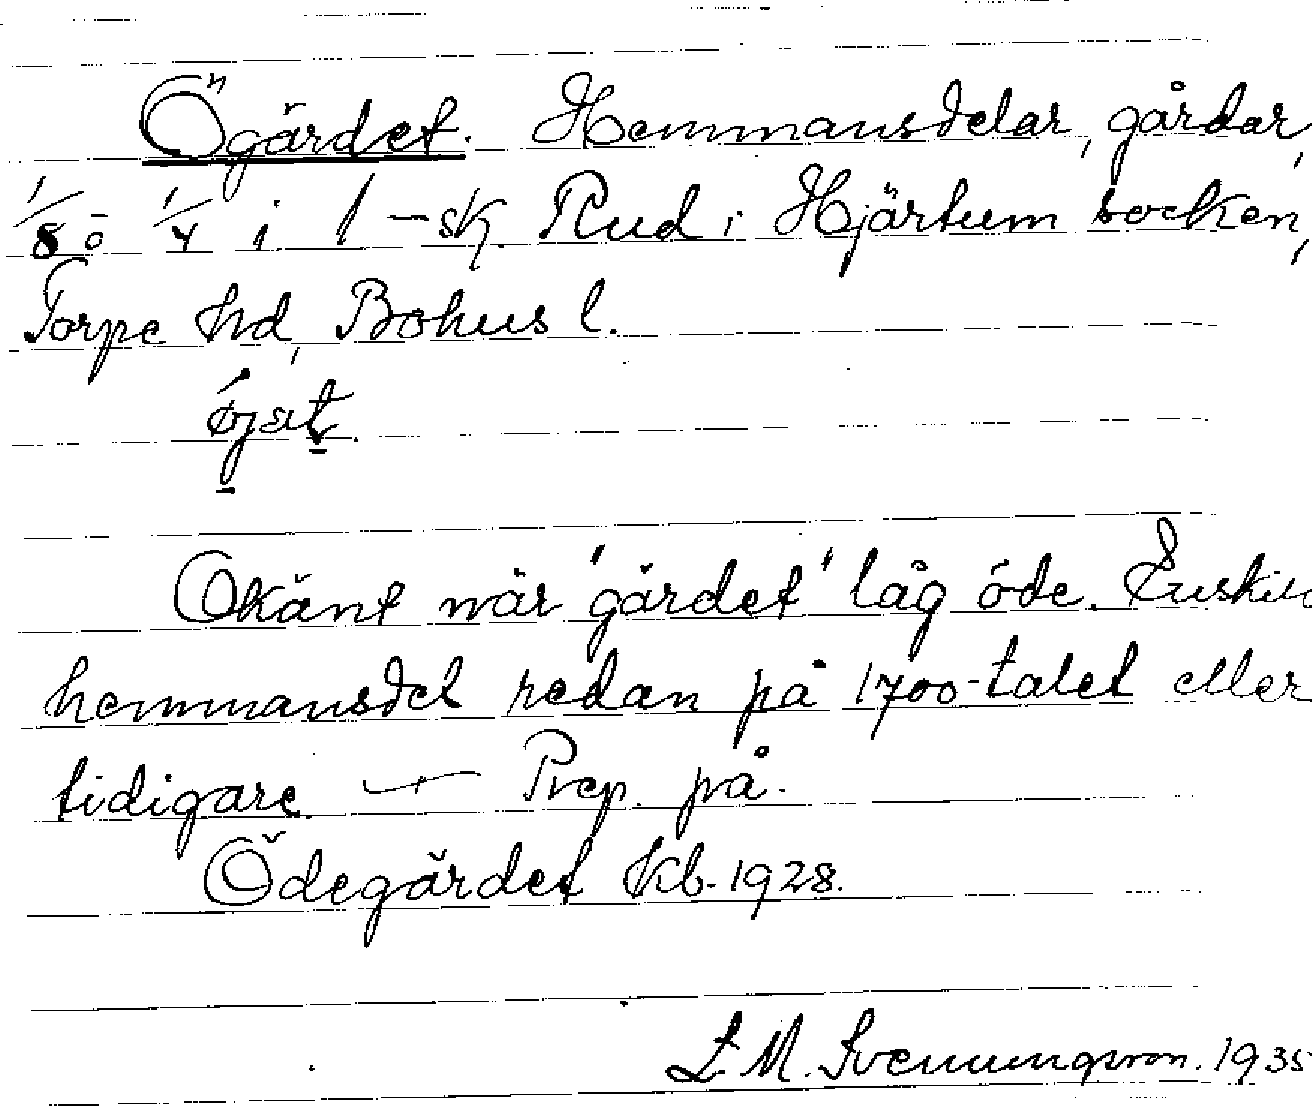 Ögärdet. Hemmansdelar, gårdar,
1/8 o 1/4 i 1-sk. Rud i Hjärtum socken,
Torpe hd, Bohus l.
Okänt när 'gärdet' låg öde. Enskild
hemmansdel redan på 1700-talet eller
tidigare — Prep. på.
Ödegärdet Kb. 1928.
L. M. Svenungsson. 1935